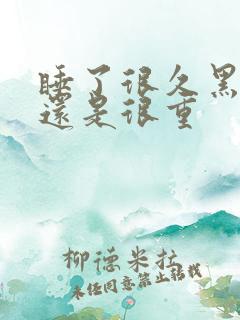 睡了很久黑
還是很重
柳德米拉
未经同意禁止转载